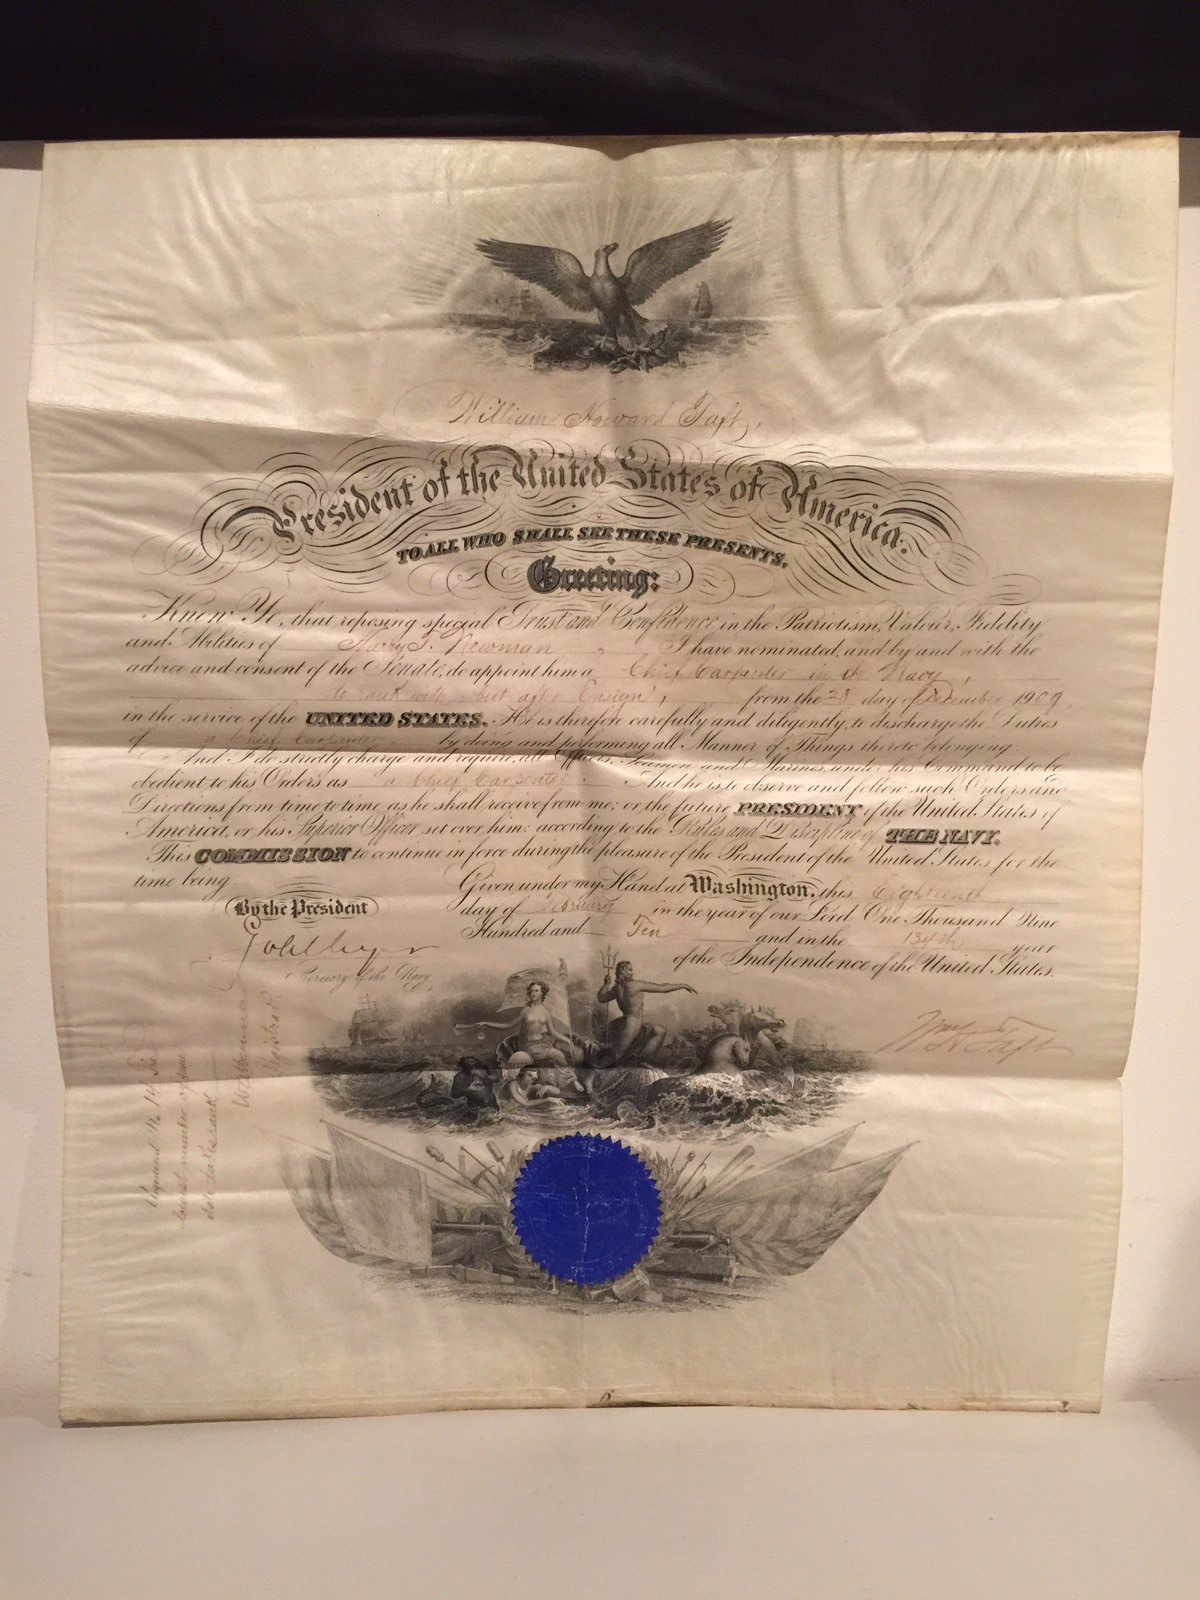 William Howard Taft,
President of the United States of America.
TO ALL WHO SHALL SEE THESE PRESENTS,
Greeting:
Know Ye, that reposing special Trust and Confidence in the Patriotism, Valour, Fidelity
and Abilities of Harry T. Newman, I have nominated, and by and with the
advice and consent of the Senate, do appoint him a Chief Carpenter in the Navy,
to rank with, but after Ensign, from the 28 day of December, 1909,
in the service of the UNITED STATES. He is therefore carefully and diligently, to discharge the Duties
of a Chief Carpenter by doing and performing all Manner of Things thereto belonging.
And I do strictly charge and require, all Officers, Seamen and Marines, under his Command to be
obedient to his Orders as a Chief Carpenter. And he is to observe and follow such Orders and
Directions from time to time as he shall receive from me; or the future PRESIDENT of the United States of
America, or his Superior Officer set over him: according to the Rules and Discipline of THE NAVY.
This COMMISSION to continue in force during the pleasure of the President of the United States for the
time being.
Given under my Hand at Washington, this Eighteenth
By the President
day of February in the year of our Lord One Thousand Nine
Hundred and Ten and in the 134th year
of the Independence of the United States.
Secretary of the Navy.
Wm H Taft
Registered.